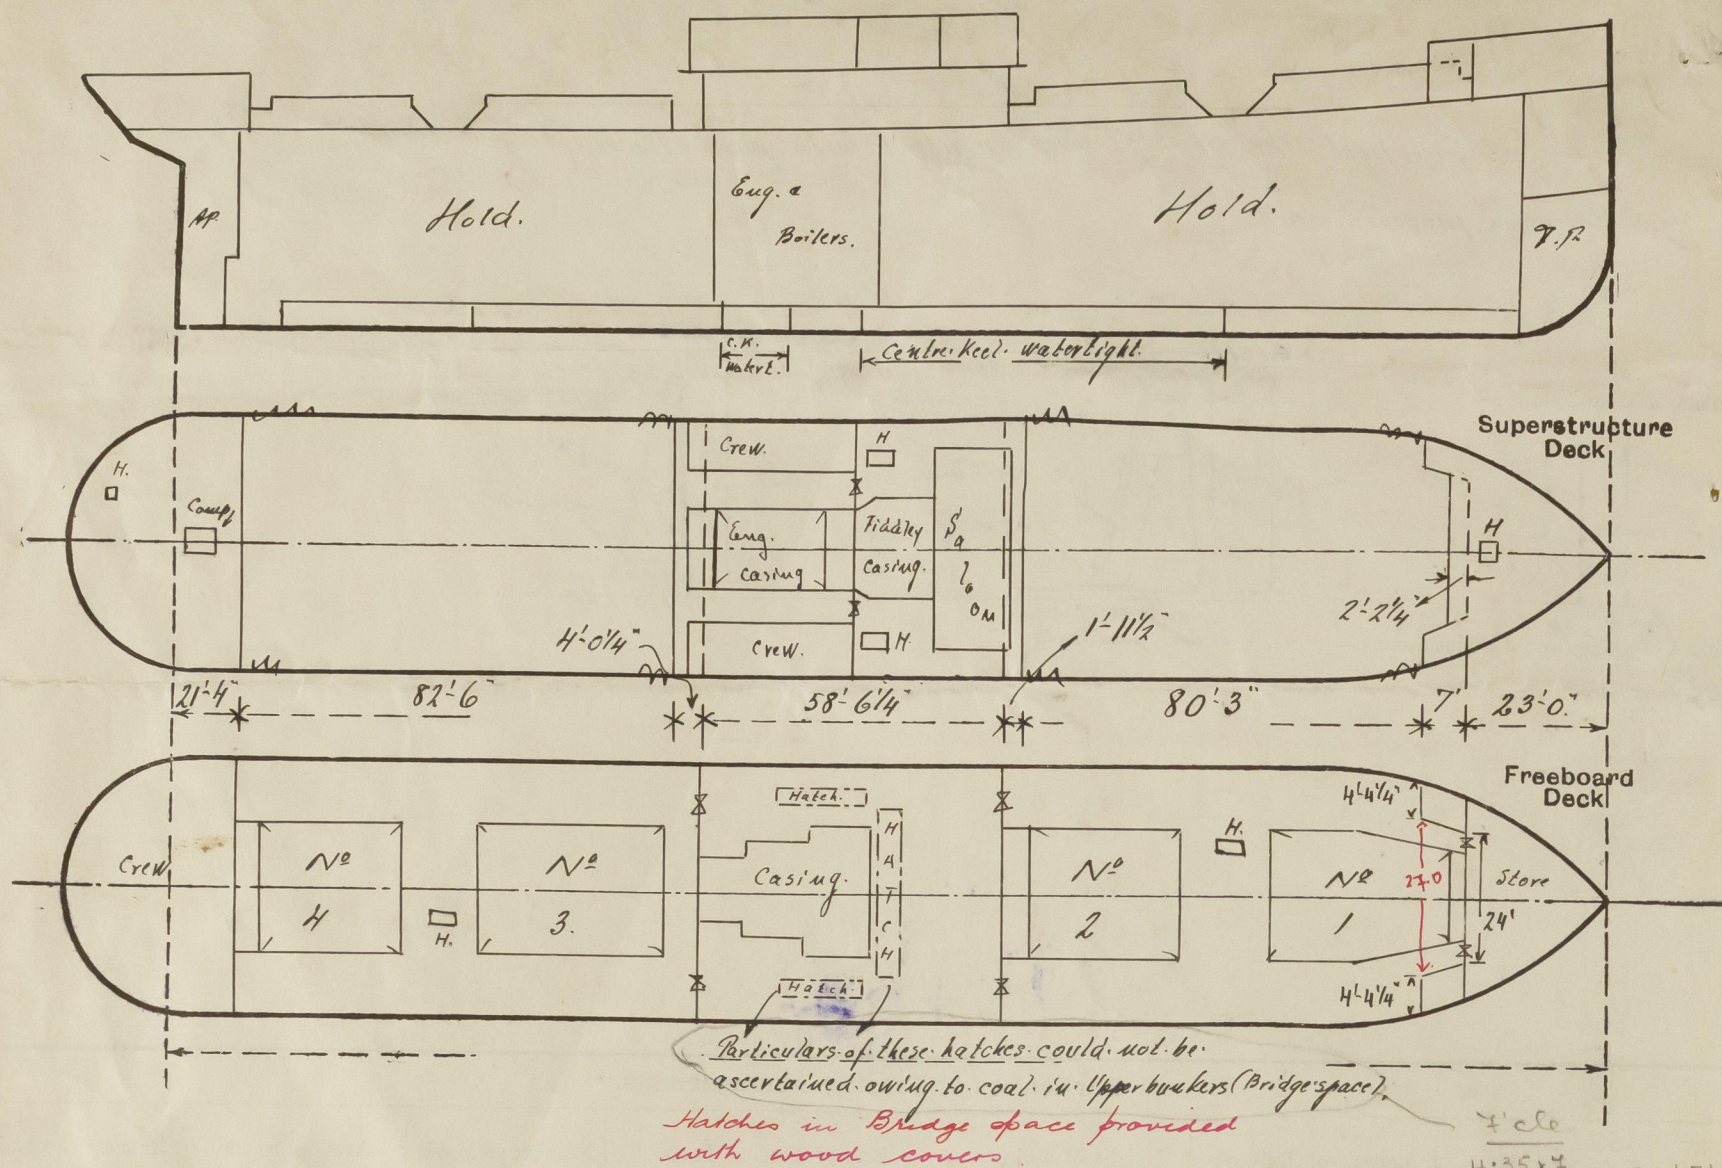 A.P.
Hold.
Eng. &
Boilers.
Hold.
C.K.
Watert.
Centre Keel watertight.
Superstructure
Deck
H.
Comp.
Crew.
H
Eng.
Casing
Fiddley
Casing.
Saloon
H
Crew.
H.
4'-0¼"
1'-11½"
2'-2¼"
21'-4"
82'-6"
58'-6¼"
80'-3"
7'
23'-0"
Freeboard
Deck
4'-4¼"
Hatch.
H.
Crew
Nº
4
H.
Nº
3.
Casing.
HATCH
Nº
2
Nº
1
27.0
Store
24'
Hatch.
4'-4¼"
Particulars of these hatches could not be
ascertained owing to coal in Upper bunkers (Bridge space).
Hatches in Bridge space provided
with wood covers